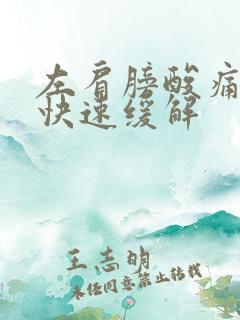 左肩膀酸痛
快速缓解
王志明
未经同意禁止转载